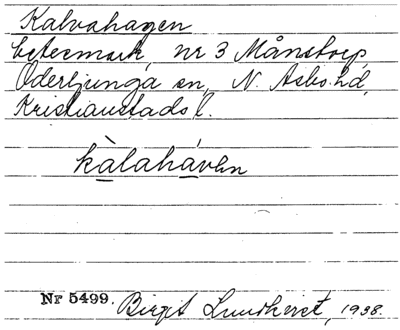 Kalvahagen
betesmark, nr 3 Månstorp,
Oderljunga sn, N. Åsbo hd,
Kristianstads l.
kàlaháven
Nr 5499. Birgit Lundkvist, 1938.